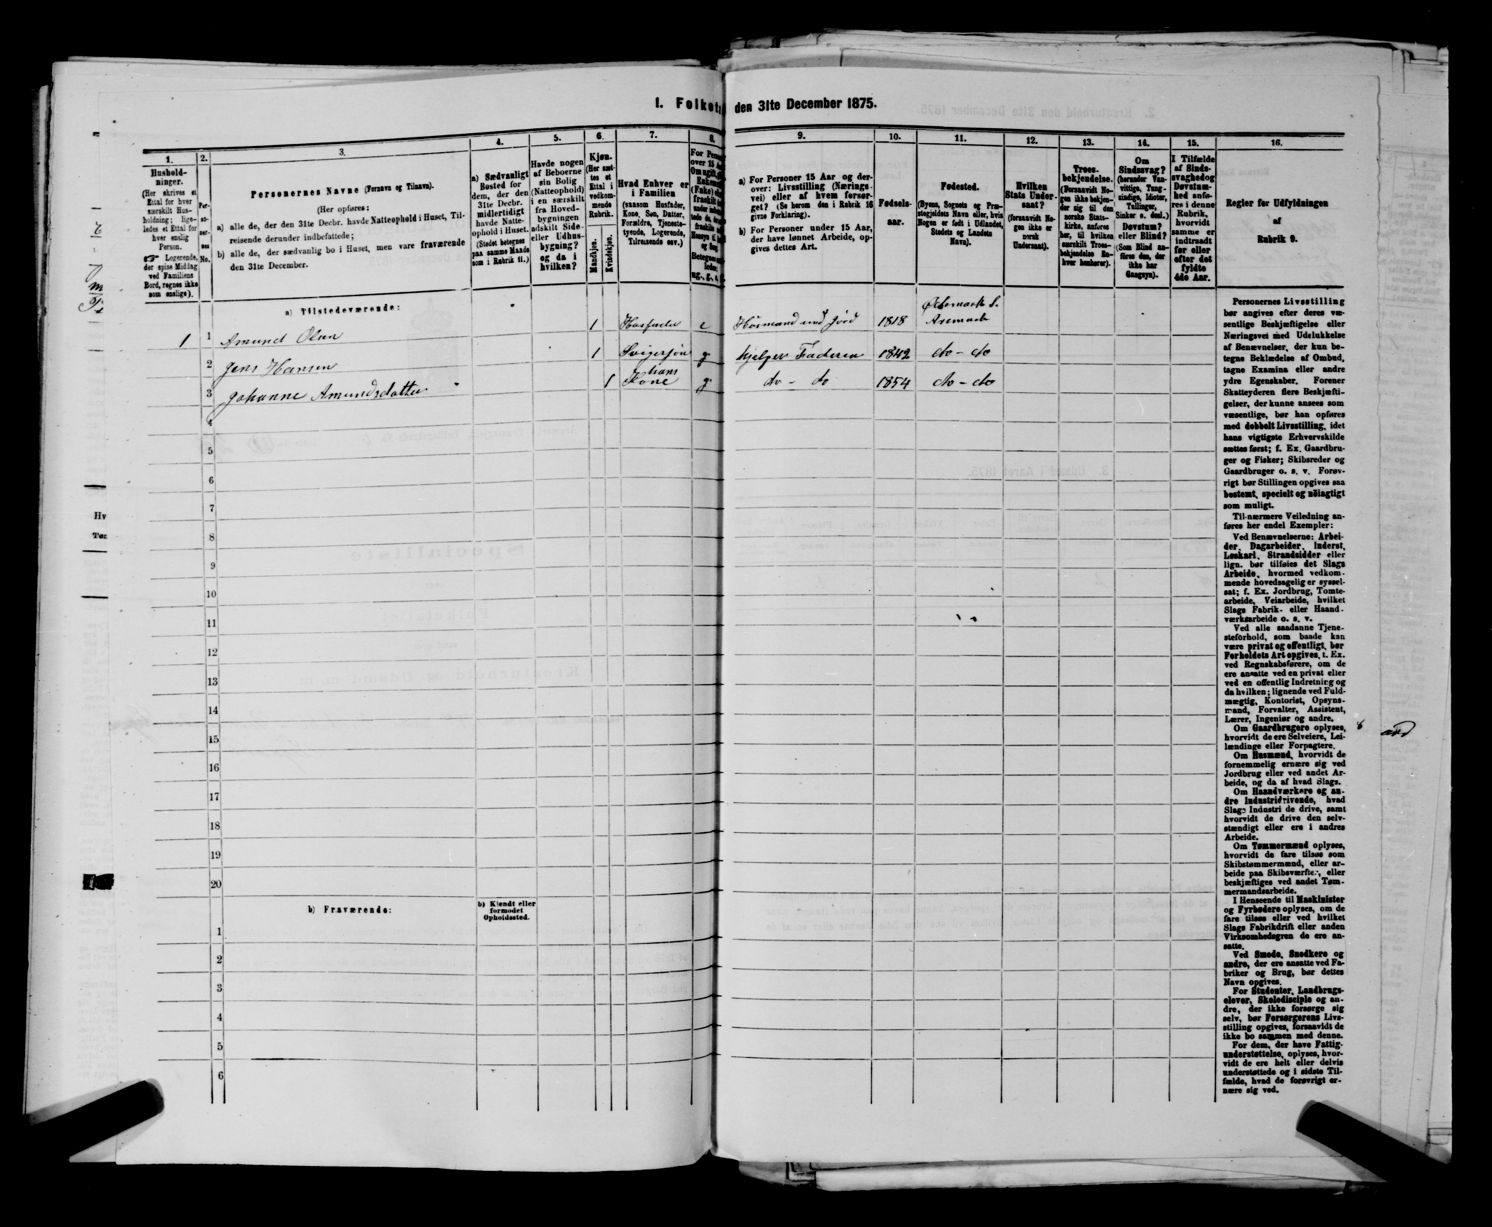 1. Folket
den 31te December 1875.
1.
2.
3.
4.
5.
6.
7.
8.
9.
10.
11.
12.
13.
14.
15.
16.
Hushold-
ninger.
(Her skrives et
Ettal for hver
særskilt Hus-
holdning; lige-
ledes et Ettal for
hver enslig
Person.
Logerende,
der spise Middag
ved Familiens
Bord, regnes ikke
som enslige).
Per-
so-
ner-
nes
No.
Personernes Navne (Fornavn og Tilnavn).
(Her opføres:
a) alle de, der den 31te Decbr. havde Natteophold i Huset, Til-
reisende derunder indbefattede;
b) alle de, der sædvanlig bo i Huset, men vare fraværende
den 31te December.
a) Sædvanligt
Bosted for
dem, der den
31te Decbr.
midlertidigt
havde Natte-
ophold i Huset.
(Stedet betegnes
paa samme Maade
som i Rubrik 11.)
Havde nogen
af Beboerne
sin Bolig
(Natteophold)
i en særskilt
fra Hoved-
bygningen
adskilt Side-
eller Udhus-
bygning?
og da i
hvilken?
Kjøn.
(Her sæt-
tes et
Ettal i
vedkom-
mende
Rubrik.
Mandkjøn.
Kvindekjøn.
Hvad Enhver er
i Familien
(saasom Husfader,
Kone, Søn, Datter,
Forældre, Tjeneste-
tyende, Logerende,
Tilreisende osv.)
a) For Personer 15 Aar og der-
over: Livsstilling (Nærings-
vei) eller af hvem forsør-
get? (Se herom den i Rubrik 16
givne Forklaring).
b) For Personer under 15 Aar,
der have lønnet Arbeide, op-
gives dettes Art.
Fødsels-
aar.
Fødested.
(Byens, Sognets og Præ-
stegjeldets Navn eller, hvis
Nogen er født i Udlandet,
Stedets og Landets
Navn).
Hvilken
Stats Under-
saat?
(forsaavidt No-
gen ikke er
norsk
Undersaat).
Troes-
bekjendelse.
(Forsaavidt No-
gen ikke bekjen-
der sig til den
norske Stats-
kirke, anføres
her, til hvilken
særskilt Troes-
bekjendelse En-
hver henhører).
Om
Sindssvag?
(herunder Van-
vittige, Tung-
sindige, Idioter,
Tullinger,
Sinker o. desl.)
Døvstum?
eller Blind?
(Som Blind an-
føres den, der
ikke har
Gangsyn).
I Tilfælde
af Sinds-
svaghed og
Døvstum-
hed anfø-
res i denne
Rubrik,
hvorvidt
samme er
indtraadt
før eller
efter det
fyldte
4de Aar.
Regler for Udfyldningen
af
Rubrik 9.
a) Tilstedeværende:
1 1 Amund Olsen 1 Husfader e Husmand med Jord 1818 Ødemark S. Aremark
2 Jens Hansen 1 Svigersøn g hjelper Faderen 1842 do - do
3 Johanne Amundsdatter 1 hans Kone g do - do 1854 do - do
4
5
6
7
8
9
10
11
12
13
14
15
16
17
18
19
20
b) Fraværende:
b) Kjendt eller
formodet
Opholdssted.
1
2
3
4
5
6
Personernes Livsstilling
bør angives efter deres væ-
sentlige Beskjæftigelse eller
Næringsvei med Udelukkelse
af Benævnelser, der kun be-
tegne Beklædelse af Ombud,
tagne Examina eller andre
ydre Egenskaber. Forener
Skatteyderen flere Beskjæfti-
gelser, der kunne ansees som
væsentlige, bør han opføres
med dobbelt Livsstilling, idet
hans vigtigste Erhvervskilde
sættes først; f. Ex. Gaardbru-
ger og Fisker; Skibsreder og
Gaardbruger o. s. v. Forøv-
rigt bør Stillingen opgives saa
bestemt, specielt og nøiagtigt
som muligt.
Til nærmere Veiledning an-
føres her endel Exempler:
Ved Benævnelserne: Arbei-
der, Dagarbeider, Inderst,
Løskarl, Strandsidder eller
lign. bør tilføies det Slags
Arbeide, hvormed vedkom-
mende hovedsagelig er syssel-
sat; f. Ex. Jordbrug, Tomte-
arbeide, Veiarbeide, hvilket
Slags Fabrik- eller Haand-
værksarbeide o. s. v.
Ved alle saadanne Tjene-
steforhold, som baade kan
være privat og offentligt, bør
Forholdets Art opgives, t. Ex.
ved Regnskabsførere, om de
ere ansatte ved en privat eller
ved en offentlig Indretning og
da hvilken; lignende ved Fuld-
mægtig, Kontorist, Opsyns-
mand, Forvalter, Assistent,
Lærer, Ingeniør og andre.
Om Gaardbrugere oplyses,
hvorvidt de ere Selveiere, Lei-
lændinge eller Forpagtere.
Om Husmænd, hvorvidt de
fornemmelig ernære sig ved
Jordbrug eller ved andet Ar-
beide, og da af hvad Slags.
Om Haandværkere og an-
dre Industridrivende, hvad
Slags Industri de drive, samt
hvorvidt de drive den selv-
stændigt eller ere i andres
Arbeide.
Om Tømmermænd oplyses,
hvorvidt de fare tilsøs som
Skibstømmermænd, eller ar-
beide paa Skibsværfter, eller
beskjæftiges ved andet Tøm-
mermandsarbeide.
I Henseende til Maskinister
og Fyrbødere oplyses, om de
fare tilsøs eller ved hvilket
Slags Fabrikdrift eller anden
Virksomhedsgren de ere an-
satte.
Ved Smede, Snedkere og
andre, der ere ansatte ved Fa-
briker og Brug, bør dettes
Navn opgives.
For Studenter, Landbrugs-
elever, Skoledisciple og an-
dre, der ikke forsørge sig
selv, bør Forsørgerens Livs-
stilling opgives, forsaavidt de
ikke bo sammen med denne.
For dem, der have Fattig-
understøttelse, oplyses, hvor-
vidt de ere helt eller delvis
understøttede og i sidste Til-
fælde, hvad de forøvrigt er-
nære sig ved.